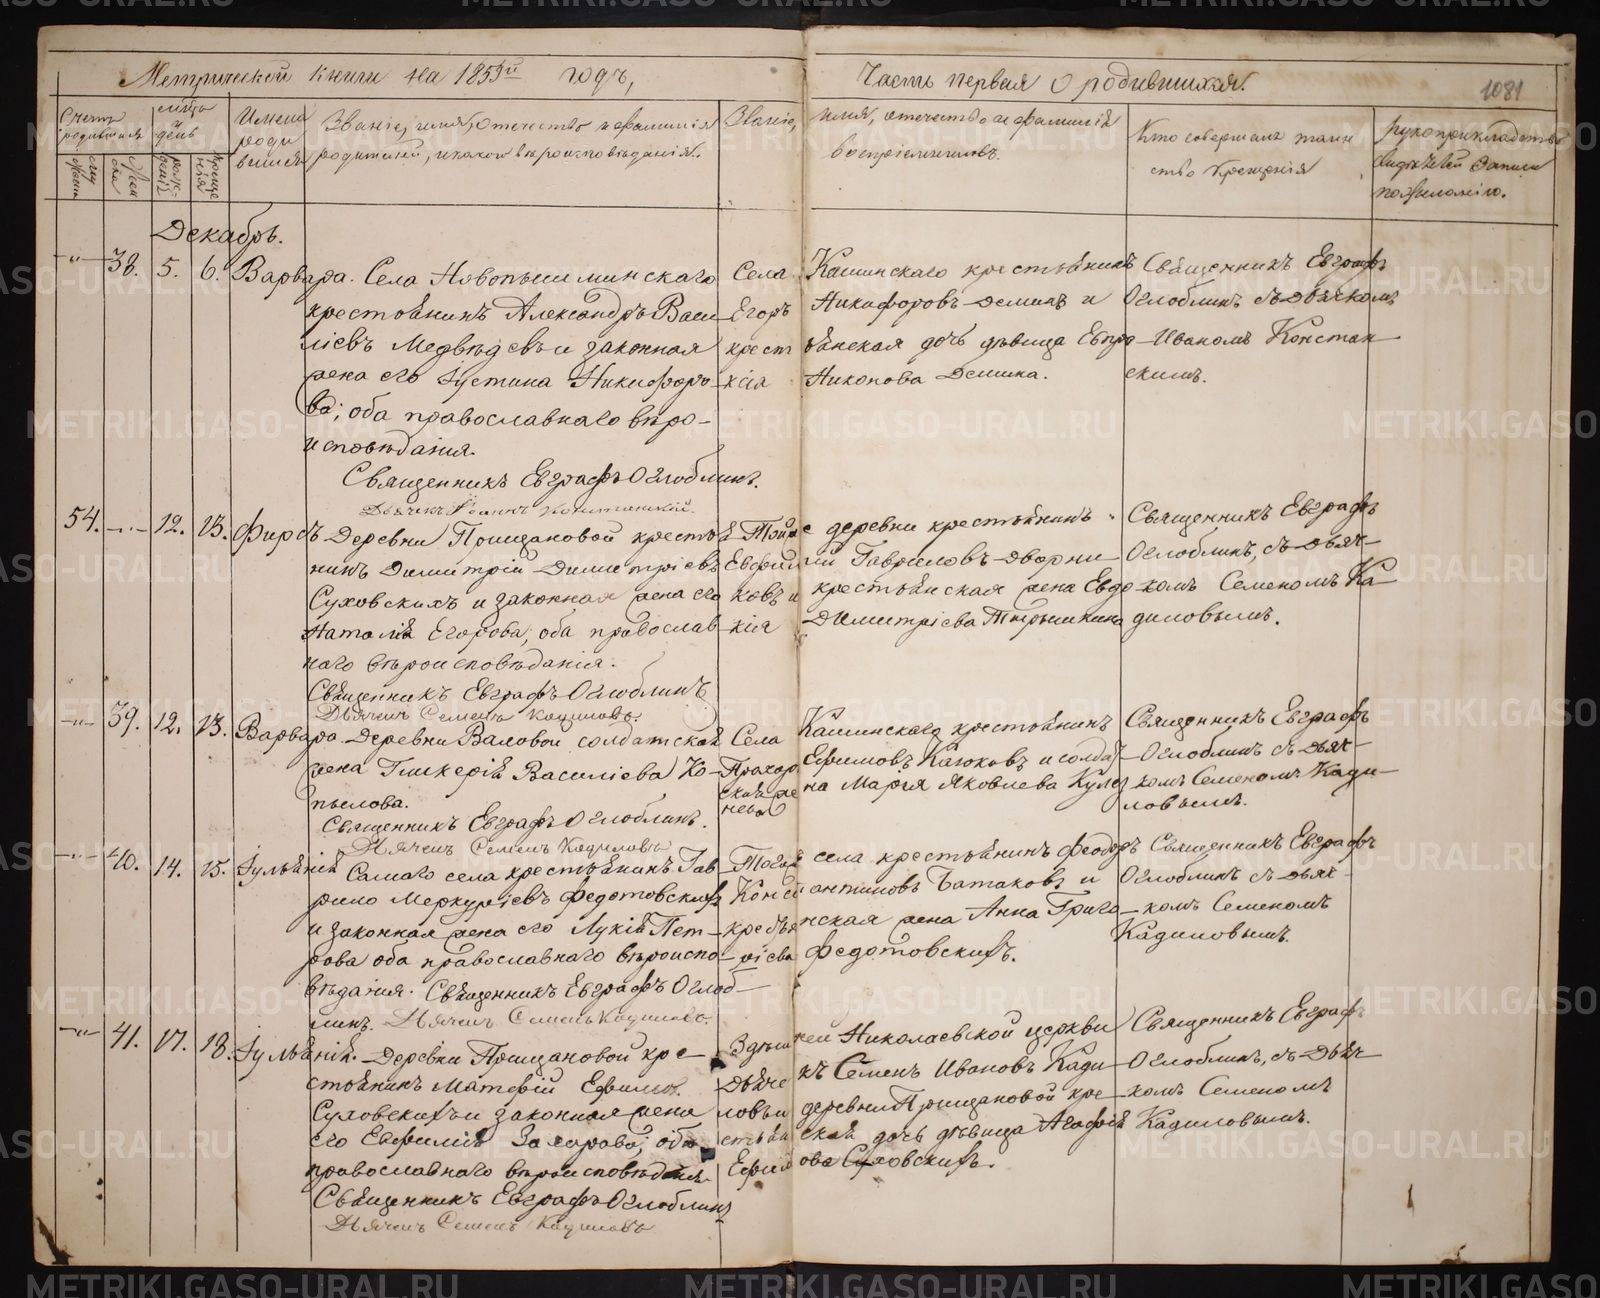 Метрической книги на 1853й годъ,
Часть первая о родившихся.
1081
Счетъ родившихся
мѣсяцъ и день
Имена родившихся
Званіе, имя, отечество и фамилія
родителей, и какого вѣроисповѣданія.
Званіе,
имя, отечество и фамилія
воспріемниковъ.
Кто совершалъ таин
ство крещенія
рукоприкладство
свидѣтелей записи
по желанію.
Декабрь.
38. 5. 6. Варвара. Села Новопышминскаго
крестьянинъ Александръ Васи
ліевъ Медвѣдевъ и законная
жена его Іустина Никифоро
ва; оба православнаго вѣро-
исповѣданія.
Священникъ Евграфъ Оглоблинъ.
Села Кашинскаго крестьянинъ
Егоръ Никифоровъ Деминъ и
крестьянская дочь дѣвица Евпра
ксія Никонова Демина.
Священникъ Евграфъ
Оглоблинъ съ дьячкомъ
Иваномъ Констан
скимъ.
54. 12. 13. Фирсъ Деревни Прищановой кресть
нинъ Димитрій Димитріевъ
Суховскихъ и законная жена его
Наталія Егорова, оба православ
наго вѣроисповѣданія.
Священникъ Евграфъ Оглоблинъ
Дьячекъ Семенъ Кадиловъ.
Тойже деревни крестьянинъ
Евфимій Гавриловъ Дворни
ковъ и крестьянская жена Евдо
кія Димитріева
Священникъ Евграфъ
Оглоблинъ, съ дьяч-
комъ Семеномъ Ка
диловымъ.
39. 12. 13. Варвара Деревни Валовой солдатская
жена Гликерія Василіева Ко-
пылова.
Священникъ Евграфъ Оглоблинъ.
Дьячекъ Семенъ Кадиловъ
Села Кашинскаго крестьянинъ
Прохоръ Ефимовъ и солдат
ская жена Марія Яковлева
Священникъ Евграфъ
Оглоблинъ съ дьяч-
комъ Семеномъ Кади-
ловымъ.
40. 14. 15. Іульянія Самаго села крестьянинъ Гав
рило Меркуріевъ Федотовскихъ
и законная жена его Лукія Пет-
рова оба православнаго вѣроиспо-
вѣданія. Священникъ Евграфъ Оглоб-
линъ. Дьячекъ Семенъ Кадиловъ.
Тогоже села крестьянинъ Феодоръ
Константиновъ Батаковъ и
крестьянская жена Анна Григо-
ріева Федотовскихъ.
Священникъ Евграфъ
Оглоблинъ съ дьяч-
комъ Семеномъ
Кадиловымъ.
41. 17. 18. Іульянія. Деревни Прищановой кре-
стьянинъ Матфій Ефимовъ
Суховскихъ и законная жена
его Евфимія Захарова; оба
православнаго вѣроисповѣданія.
Священникъ Евграфъ Оглоблинъ
Дьячекъ Семенъ Кадиловъ
Здѣшней Николаевской церкви
Дьячекъ Семенъ Ивановъ Кади-
ловъ и деревни Прищановой кре-
стьянской дочь дѣвица Агафія
Ефимова Суховскихъ.
Священникъ Евграфъ
Оглоблинъ, съ дьяч-
комъ Семеномъ
Кадиловымъ.
METRIKI.GASO-URAL.RU